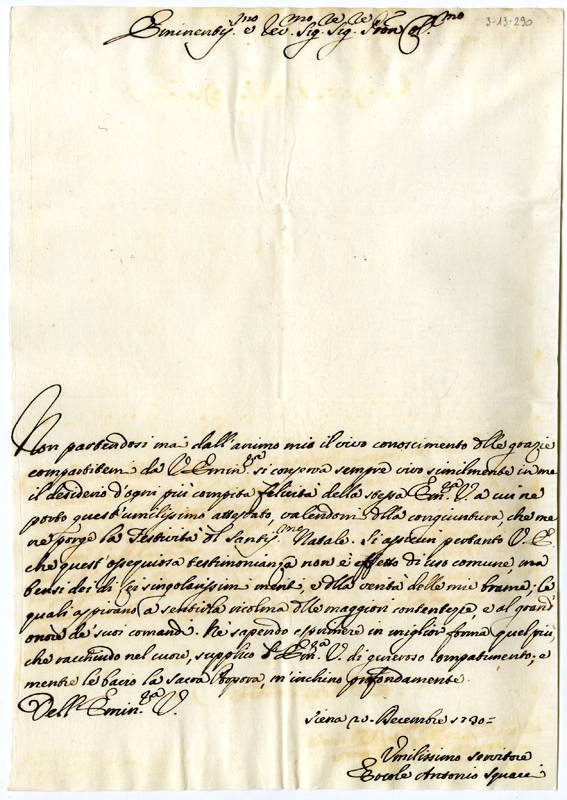 Eminentiss.mo e Rev.mo Sig.re Sig.re Pron Col.mo
3-13-290
Non partendosi mai dall'animo mio il vivo conoscimento delle grazie
compartitemi da V. Emin.za si conserva sempre vivo similmente in me
il desiderio d'ogni più compita felicità della stessa Em.za V. a cui ne
porto quest'umilissimo attestato, valendomi della congiuntura, che me
ne porge la Festività del Santiss.mo Natale. Si assicuri pertanto V. E.
che quest'ossequiosa testimonianza non è effetto di uso comune, ma
bensì dei di Lei singolarissimi meriti, e della verità delle mie brame, le
quali aspirano a sentirla ricolma delle maggiori contentezze e al grand'
onore de' suoi comandi. Nè sapendo esprimere in miglior forma quel più,
che racchiudo nel cuore, supplico l'Em.za V. di generoso compatimento; e
mentre le bacio la sacra Porpora, m'inchino profondamente.
Dell'Emin.za V.
Siena 20 Decembre 1730=
Umilissimo servitore
Ercole Antonio